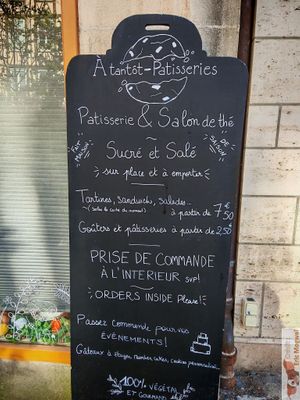 À tantôt-Pâtisseries
Patisserie & Salon de thé
FAIT MAISON
DE SAISON
Sucré et Salé
sur place et à emporter
Tartines, sandwichs, salades...
(selon la carte du moment) à partir de 7€50
Goûters et pâtisseries à partir de 2,50
PRISE DE COMMANDE
À L'INTERIEUR SVP!
ORDERS INSIDE Please!
Passez commande pour vos
ÉVÈNEMENTS!
Gâteaux à étages, number cakes, cookies personnalisés...
100% VÉGÉTAL
ET GOURMAND